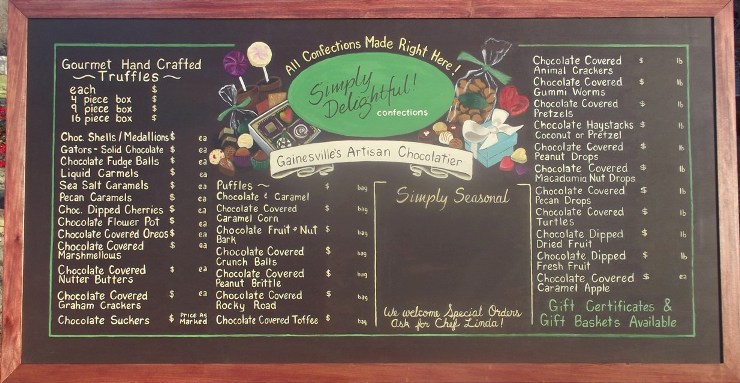 All Confections Made Right Here!
Simply
Delightful!
confections
Gainesville's Artisan Chocolatier
Gourmet Hand Crafted
~Truffles~
each $
4 piece box $
9 piece box $
16 piece box $
Choc. Shells/Medallions $ ea
Gators - Solid Chocolate $ ea
Chocolate Fudge Balls $ ea
Liquid Carmels $ ea
Sea Salt Caramels $ ea
Pecan Caramels $ ea
Choc. Dipped Cherries $ ea
Chocolate Flower Pot $ ea
Chocolate Covered Oreos $ ea
Chocolate Covered $ ea
Marshmellows
Chocolate Covered $ ea
Nutter Butters
Chocolate Covered $ ea
Graham Crackers
Chocolate Suckers $ Price As
Marked
Puffles ~ $ bag
Chocolate & Caramel
Chocolate Covered $ bag
Caramel Corn
Chocolate Fruit & Nut $ bag
Bark
Chocolate Covered $ bag
Crunch Balls
Chocolate Covered $ bag
Peanut Brittle
Chocolate Covered $ bag
Rocky Road
Chocolate Covered Toffee $ bag
Simply Seasonal
We welcome Special Orders
Ask for Chef Linda!
Chocolate Covered $ lb
Animal Crackers
Chocolate Covered $ lb
Gummi Worms
Chocolate Covered $ lb
Pretzels
Chocolate Haystacks $ lb
Coconut or Pretzel
Chocolate Covered $ lb
Peanut Drops
Chocolate Covered $ lb
Macadamia Nut Drops
Chocolate Covered $ lb
Pecan Drops
Chocolate Covered $ lb
Turtles
Chocolate Dipped $ lb
Dried Fruit
Chocolate Dipped $ lb
Fresh Fruit
Chocolate Covered $ ea
Caramel Apple
Gift Certificates &
Gift Baskets Available